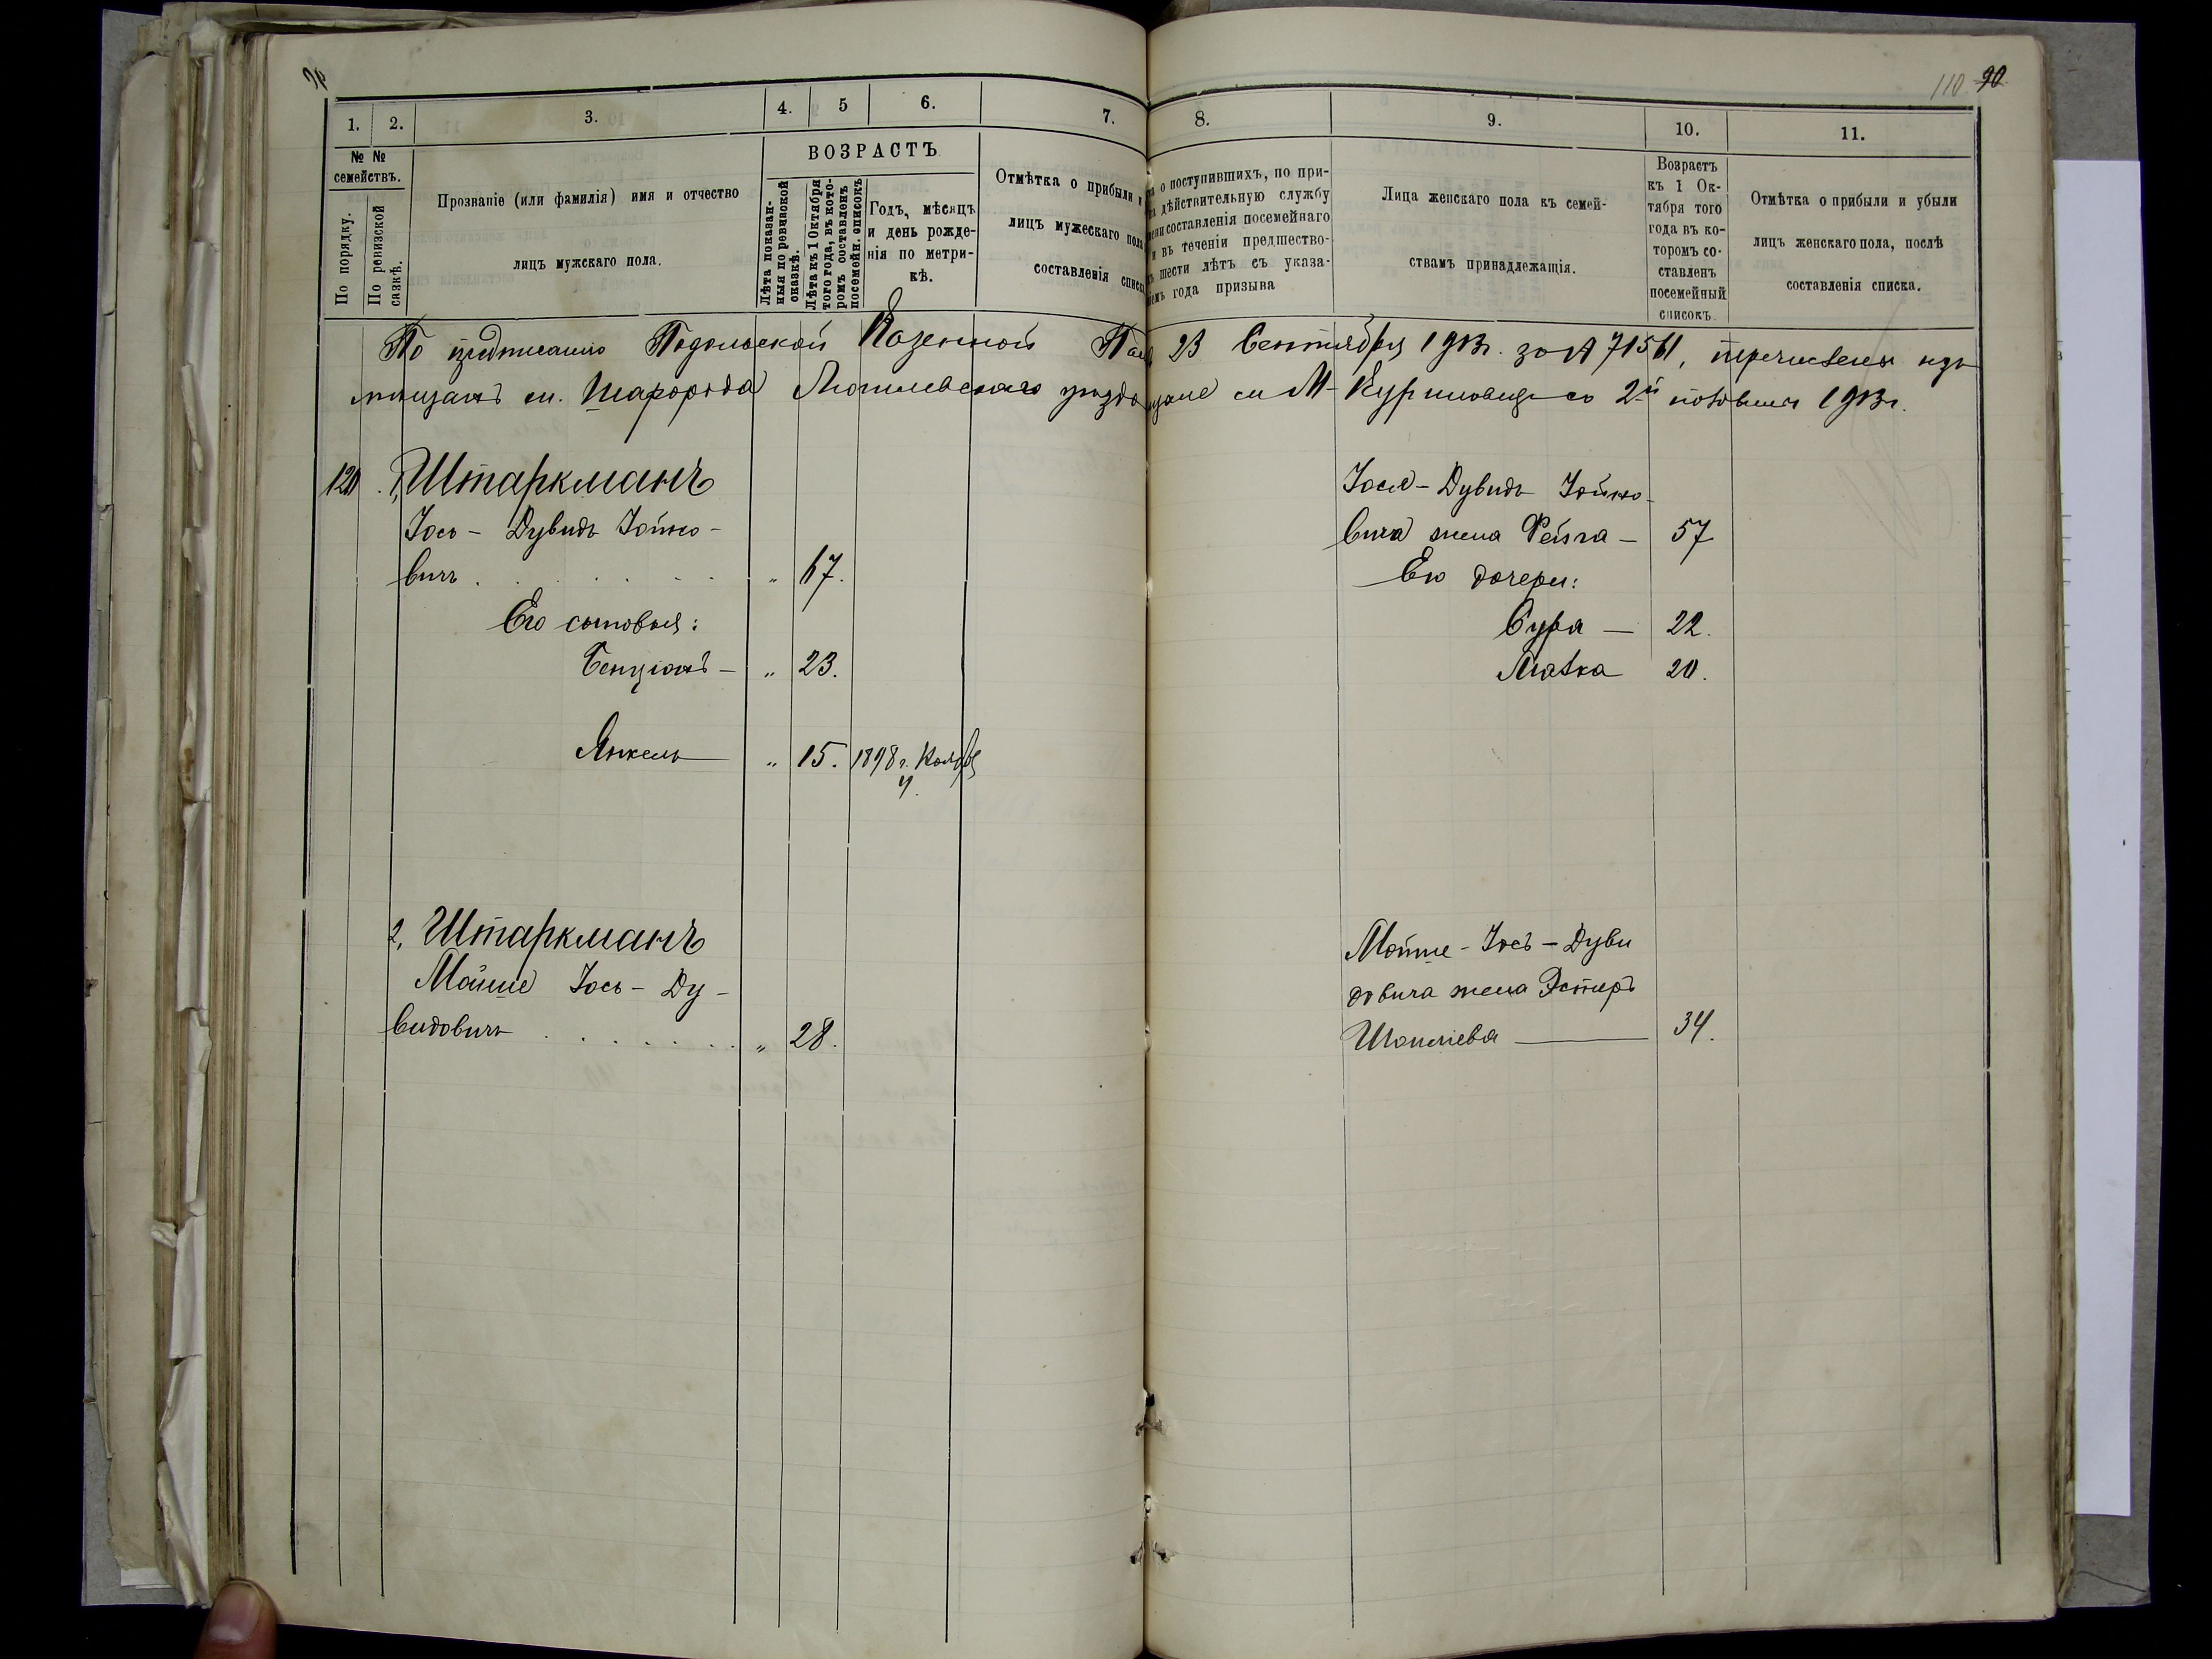 110 90
1. 2. 3. 4. 5 6. 7. 8. 9. 10. 11.
№ № семействъ.
По порядку.
По ревизской сказкѣ.
Прозваніе (или фамилія) имя и отчество
лицъ мужскаго пола.
ВОЗРАСТЪ
Лѣта показан-
ныя по ревизской
сказкѣ.
Лѣта къ 1 Октября
того года, въ кото-
ромъ составленъ
посемейн. списокъ
Годъ, мѣсяцъ
и день рожде-
нія по метри-
кѣ.
Отмѣтка о прибыли и
лицъ мужескаго пола
составленія списка
о поступившихъ, по при-
дѣйствительную службу
составленія посемейнаго
и въ теченіи предшество-
шести лѣтъ съ указа-
года призыва
Лица женскаго пола къ семей-
ствамъ принадлежащія.
Возрастъ
къ 1 Ок-
тября того
года въ ко-
торомъ со-
ставленъ
посемейный
списокъ.
Отмѣтка о прибыли и убыли
лицъ женскаго пола, послѣ
составленія списка.
По предписанію Подольской Казенной Пала 23 Сентября 1913г. за № 71561, перечислены изъ
мѣщанъ м. Шаргорода Могилевскаго уѣзда м. Куриловцы со 2й половины 1913г.
120 1, Штаркманъ
Іось - Дувидъ Іойно-
вичъ . . . . . . „ 67.
Его сыновья:
Бенціонъ — „ 23.
Янкель — „ 15. 1898 г. Ноября
4.
Іося - Дувидъ Іойно-
вича жена Фейга — 57
Его дочери:
Сура — 22.
Малка 20.
2, Штаркманъ
Мойше Іось - Ду-
видовичъ . . . . . . „ 28.
Мойше - Іось - Дуви
довича жена Эстеръ
34.